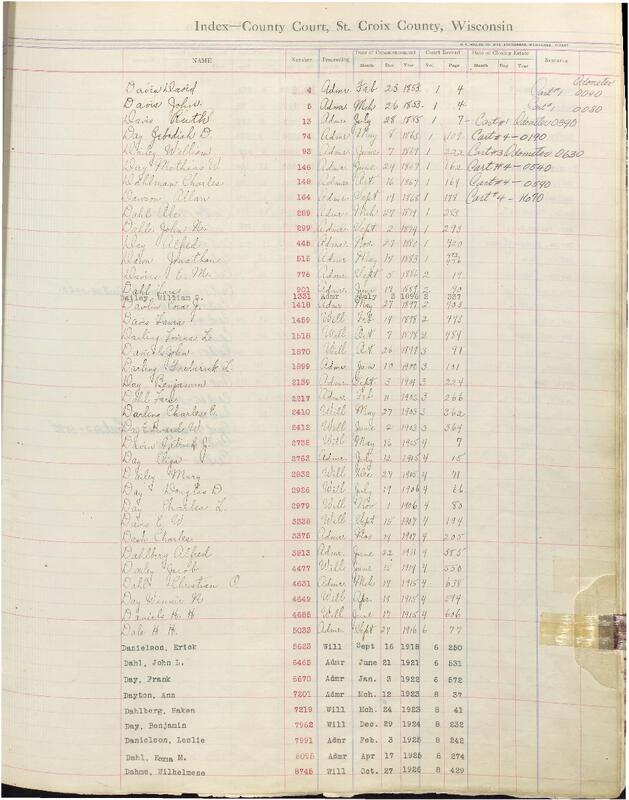 Index—County Court, St. Croix County, Wisconsin
Date of Commencement Court Record Date of Closing Estate
NAME Number Proceeding Month Day Year Vol. Page Month Day Year Remarks
Odometer
Davis David 4 Admr Feb 23 1853 1 4 Cart #1 0040
Davis John 5 Admr Mch 26 1853 1 4 Cart #1 0080
Davis Ruth 13 Admr July 28 1855 1 7 Cart #1 Odometer 0390
Day D. 74 Admr May 8 1865 1 109 Cart #4-0190
William 93 Admr June 7 1 222 Cart #3 Odometer 0630
Day Mathias W. 146 Admr June 24 1867 1 162 Cart #4-0540
Dahlman Charles 148 Admr Oct 16 1867 1 164 Cart #4-0590
Dawson Allan 164 Admr Sept 19 1868 1 188 Cart #4-1670
Dahl Ole 289 Admr Mch 27 1874 1 283
Dahle John 299 Admr Sept 2 1874 1 293
Day Alfred 448 Admr Nov 27 1880 1 420
Dawn Jonathan 515 Admr May 14 1883 1
Davis 776 Admr Sept 5 1886 2 19
Dahl 901 Admr June 1887 2 90
Dailey, William G. 1331 Admr July 2 1896 2 337
1418 Admr May 27 1897 2 403
Davis Laura 1459 Will Feb 14 1898 2 443
Darling L. 1518 Will Oct 7 1898 2 484
Daniels John 1870 Will Oct 26 1899 3 91
Darling Frederick L. 1899 Admr Jan 10 1902 3 101
Day Benjamin 2139 Admr Sept 3 3 224
2217 Admr Feb 11 1902 3 266
Darling Charles E. 2410 Will May 27 1903 3 362
Day W 2412 Will June 2 1903 3 364
Patrick J. 2738 Will May 16 1905 4 7
Day Eliza 2763 Admr July 12 1905 4 15
Dailey Mary 2832 Will Dec 27 1905 4 41
Day Douglas D. 2926 Will July 17 1906 4 66
Day Charles L. 2979 Will Nov 1 1906 4 80
Davis E. W. 3338 Will Sept 15 1907 4 194
Dash Charles 3375 Admr Nov 19 1907 4 205
Dahlberg Alfred 3913 Admr June 22 1911 4 385
Jacob 4477 Will June 15 1914 4 550
Dahl Christian O 4631 Admr Mch 19 1915 4 638
Day 4649 Will Apr 19 1915 4 594
Daniels H. H. 4685 Will June 17 1915 4 606
Dale H. H. 5033 Admr Sept 27 1916 6 77
Danielson, Erick 5623 Will Sept 16 1918 6 250
Dahl, John L. 6465 Admr June 21 1921 6 531
Day, Frank 6670 Admr Jan. 3 1922 6 572
Dayton, Ann 7201 Admr Mch. 12 1923 8 37
Dahlberg, Haken 7219 Will Mch. 24 1923 8 41
Day, Benjamin 7962 Will Dec. 29 1924 8 232
Danielson, Leslie 7991 Admr Feb. 3 1925 8 242
Dahl, Emma M. 8095 Admr Apr 17 1925 8 274
Dahms, Wilhelmese 8745 Will Oct. 27 1926 8 429